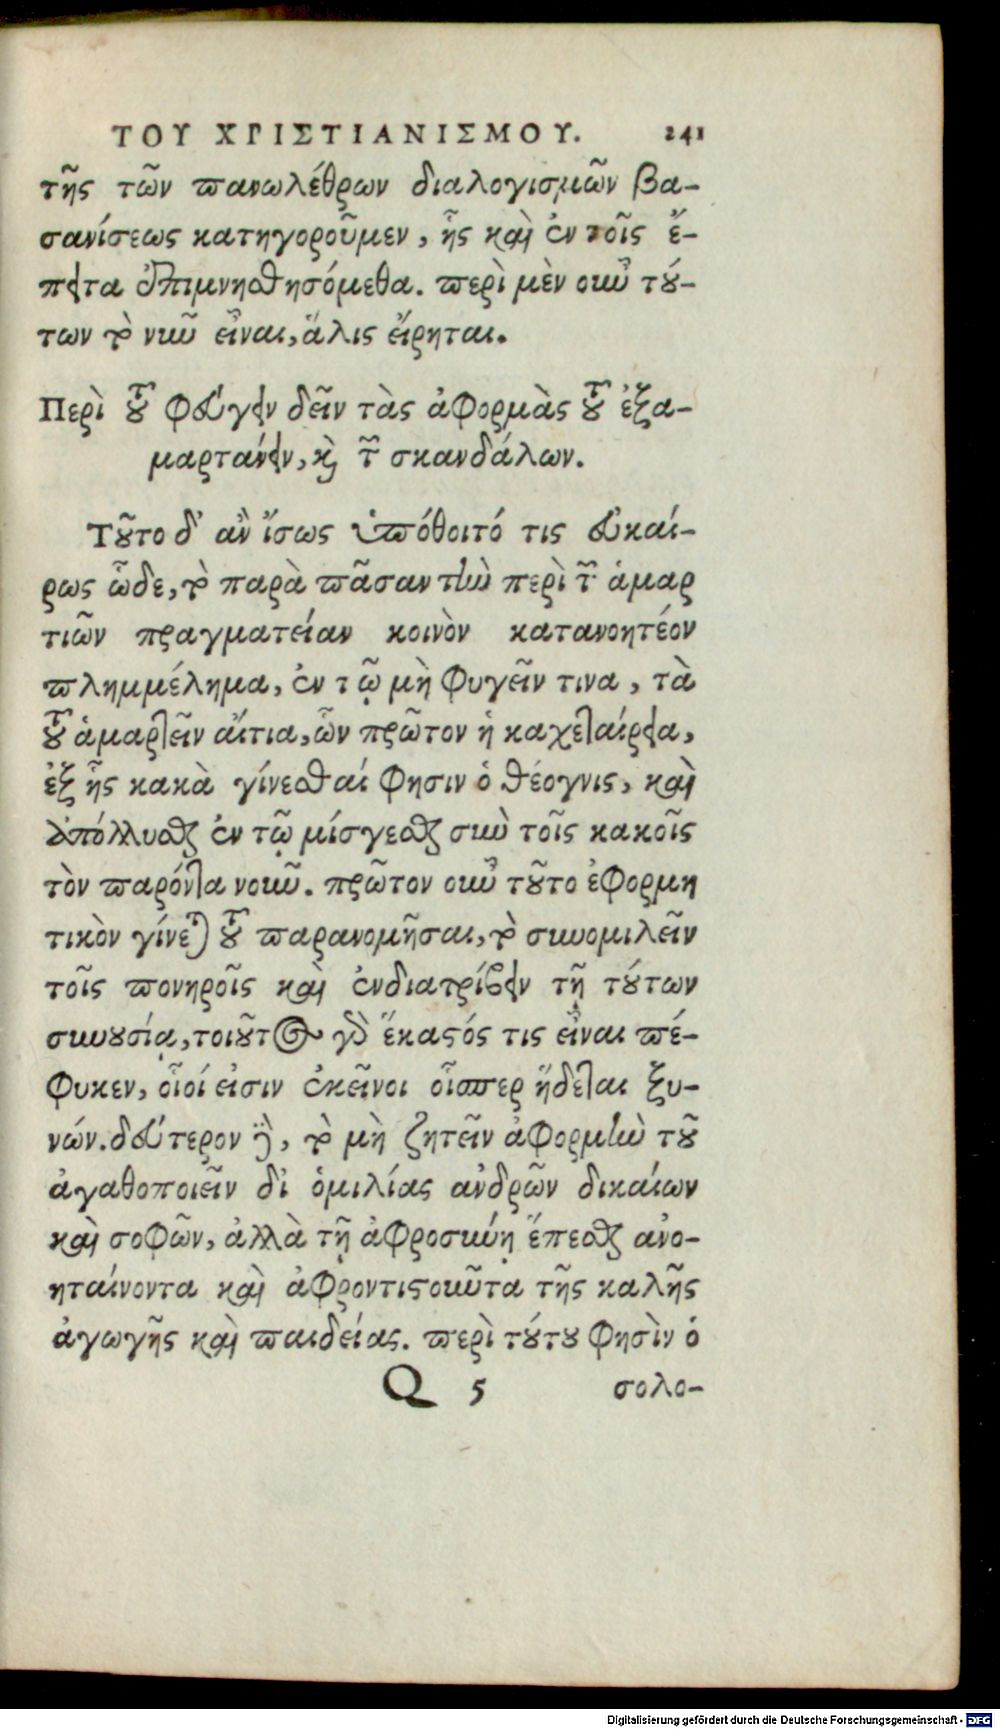 ΤΟΥ ΧΡΙΣΤΙΑΝΙΣΜΟΥ. 241
τῆς τῶν πανωλέθρων διαλογισμῶν βα-
σανίσεως κατηγοροῦμεν, ἧς καὶ ἐν τοῖς ἔ-
πειτα ἐπιμνησθησόμεθα. περὶ μὲν οὖν τού-
των τὸ νῦν εἶναι, ἅλις εἴρηται.
Περὶ τοῦ φεύγειν δεῖν τὰς ἀφορμὰς τοῦ ἐξα-
μαρτάνειν, καὶ τῶν σκανδάλων.
Τοῦτο δ' ἂν ἴσως ὑπόθοιτό τις εὐκαί-
ρως ὧδε, τὸ παρὰ πᾶσαν τὴν περὶ τῶν ἁμαρ
τιῶν πραγματείαν κοινὸν κατανοητέον
πλημμέλημα, ἐν τῷ μὴ φυγεῖν τινα, τὰ
τοῦ ἁμαρτεῖν αἴτια, ὧν πρῶτον ἡ καχεταίρεια,
ἐξ ἧς κακὰ γίνεσθαί φησιν ὁ θέογνις, καὶ
ἀπόλλυσθαι ἐν τῷ μίσγεσθαι σὺν τοῖς κακοῖς
τὸν παρόντα νοῦν. πρῶτον οὖν τοῦτο ἐφορμη
τικὸν γίνεται τοῦ παρανομῆσαι, τὸ συνομιλεῖν
τοῖς πονηροῖς καὶ ἐνδιατρίβειν τῇ τούτων
συνουσίᾳ, τοιοῦτος γὰρ ἕκαστός τις εἶναι πέ-
φυκεν, οἷοί εἰσιν ἐκεῖνοι οἷσπερ ἥδεται ξυ-
νών. δεύτερον δὲ, τὸ μὴ ζητεῖν ἀφορμὴν τοῦ
ἀγαθοποιεῖν δι' ὁμιλίας ἀνδρῶν δικαίων
καὶ σοφῶν, ἀλλὰ τῇ ἀφροσύνῃ ἕπεσθαι ἀνο-
ηταίνοντα καὶ ἀφροντιστοῦντα τῆς καλῆς
ἀγωγῆς καὶ παιδείας. περὶ τούτου φησὶν ὁ
Q 5 σολο-
Digitalisierung gefördert durch die Deutsche Forschungsgemeinschaft - DFG